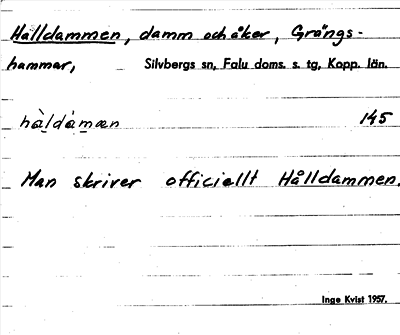 Hålldammen, damm och åker, Grängs-
hammar, Silvbergs sn, Falu doms. s. tg, Kopp. län.
hàldàmæn 145
Man skriver officiellt Hålldammen.
Inge Kvist 1957.